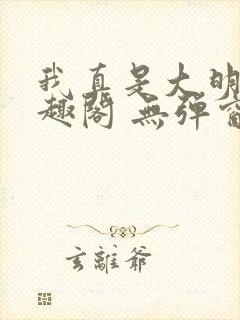 我真是大明
趣閣 無彈窗
玄離爺